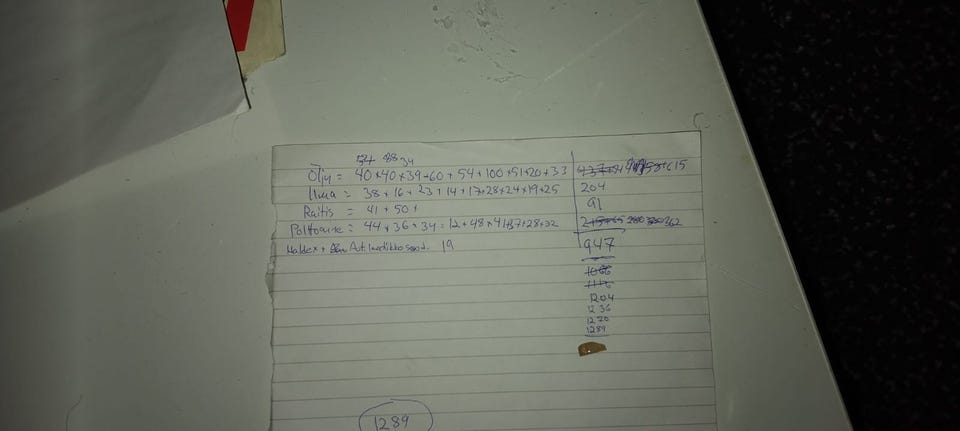 54 88 34
Öljy = 40+40+39+60+54+100+51+20+33
Ilma = 38+16+23+14+17+28+24+19+25 204
Raitis = 41+50+ 91
Polttoaine = 44+36+34+12+48+41+37+28+22
Haldex + 19
947
1066
1116
1204
1236
1270
1289
1289